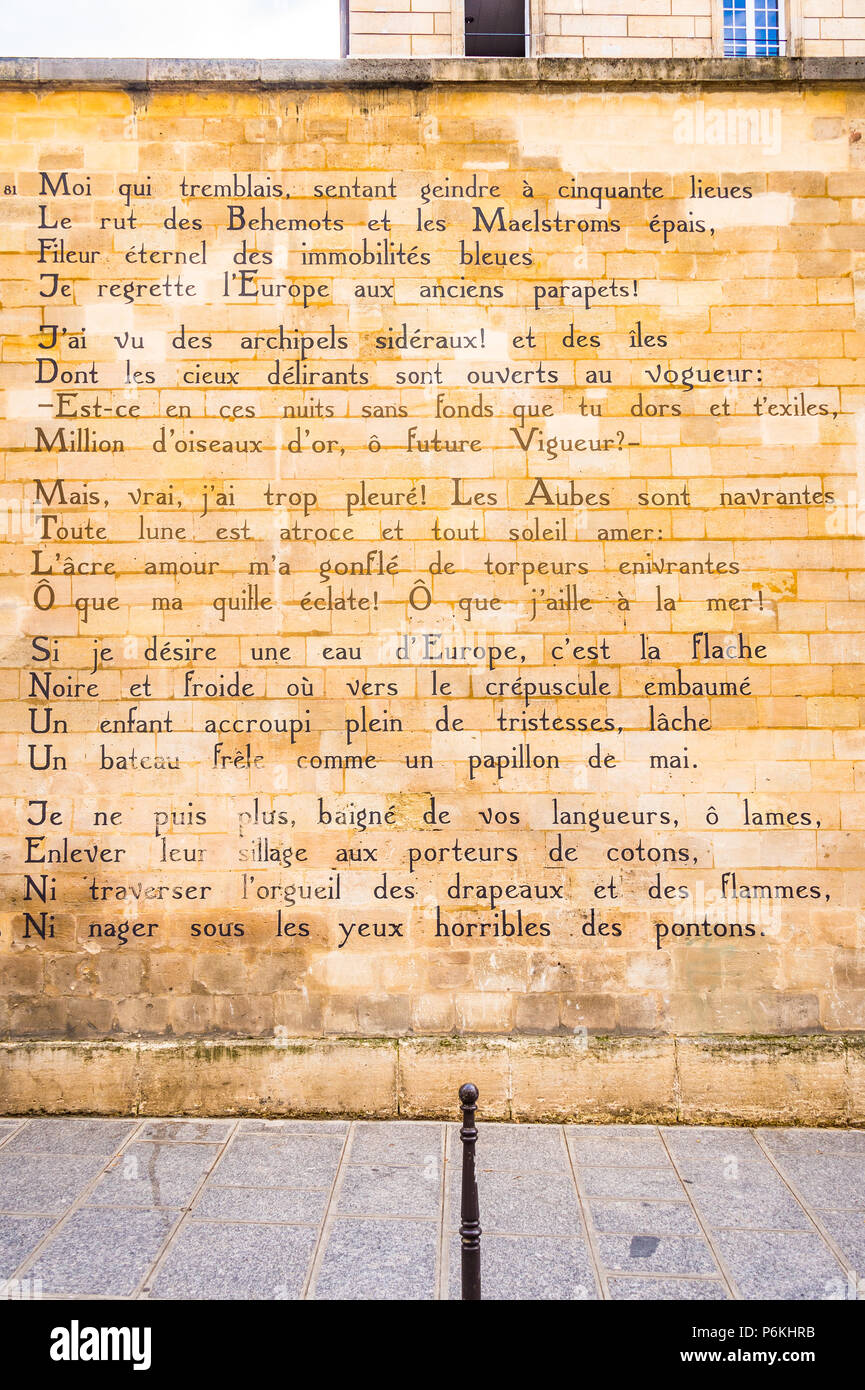 81 Moi qui tremblais, sentant geindre à cinquante lieues
Le rut des Behemots et les Maelstroms épais,
Fileur éternel des immobilités bleues
Je regrette l'Europe aux anciens parapets!
J'ai vu des archipels sidéraux! et des îles
Dont les cieux délirants sont ouverts au vogueur:
–Est-ce en ces nuits sans fonds que tu dors et t'exiles,
Million d'oiseaux d'or, ô future Vigueur?–
Mais, vrai, j'ai trop pleuré! Les Aubes sont navrantes
Toute lune est atroce et tout soleil amer:
L'âcre amour m'a gonflé de torpeurs enivrantes
Ô que ma quille éclate! Ô que j'aille à la mer!
Si je désire une eau d'Europe, c'est la flache
Noire et froide où vers le crépuscule embaumé
Un enfant accroupi plein de tristesses, lâche
Un bateau frêle comme un papillon de mai.
Je ne puis plus, baigné de vos langueurs, ô lames,
Enlever leur sillage aux porteurs de cotons,
Ni traverser l'orgueil des drapeaux et des flammes,
Ni nager sous les yeux horribles des pontons.
alamy stock photo
P6KHRB
www.alamy.com